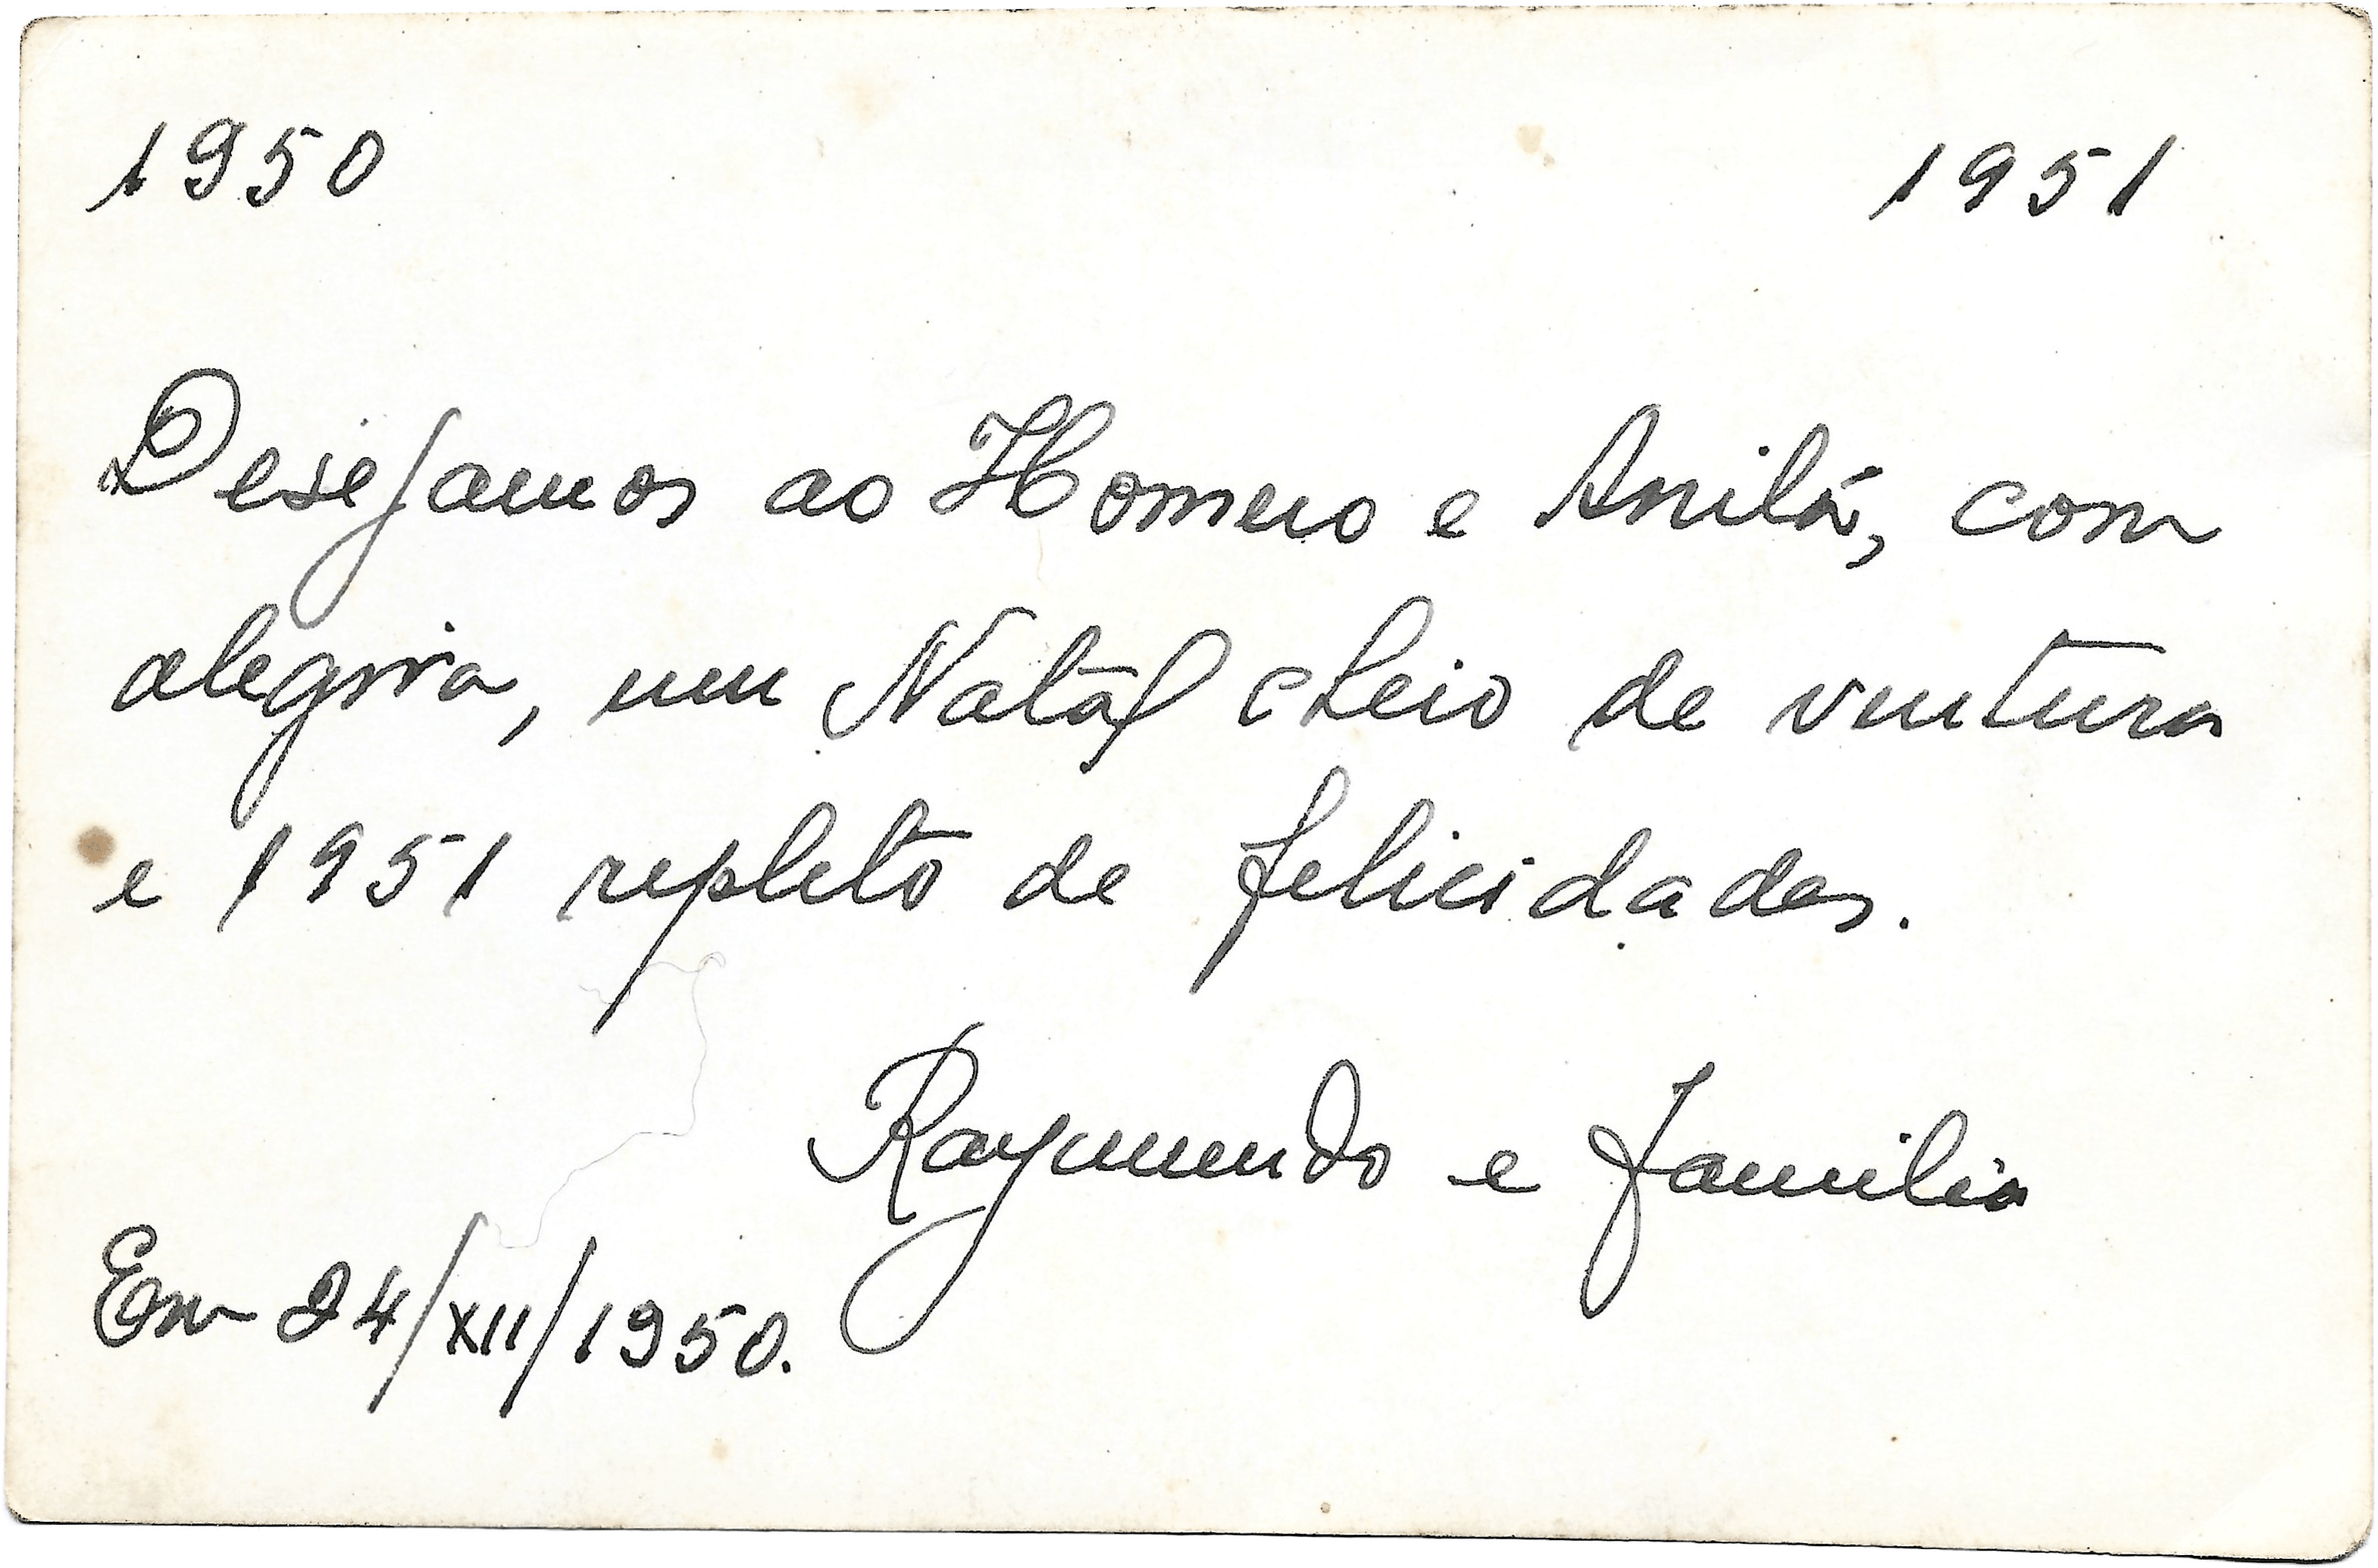 1950 1951
Desejamos ao Homero e Anilá, com
alegria, um Natal cheio de ventura
e 1951 repleto de felicidades.
Raymundo e familia
Em 24/XII/1950.